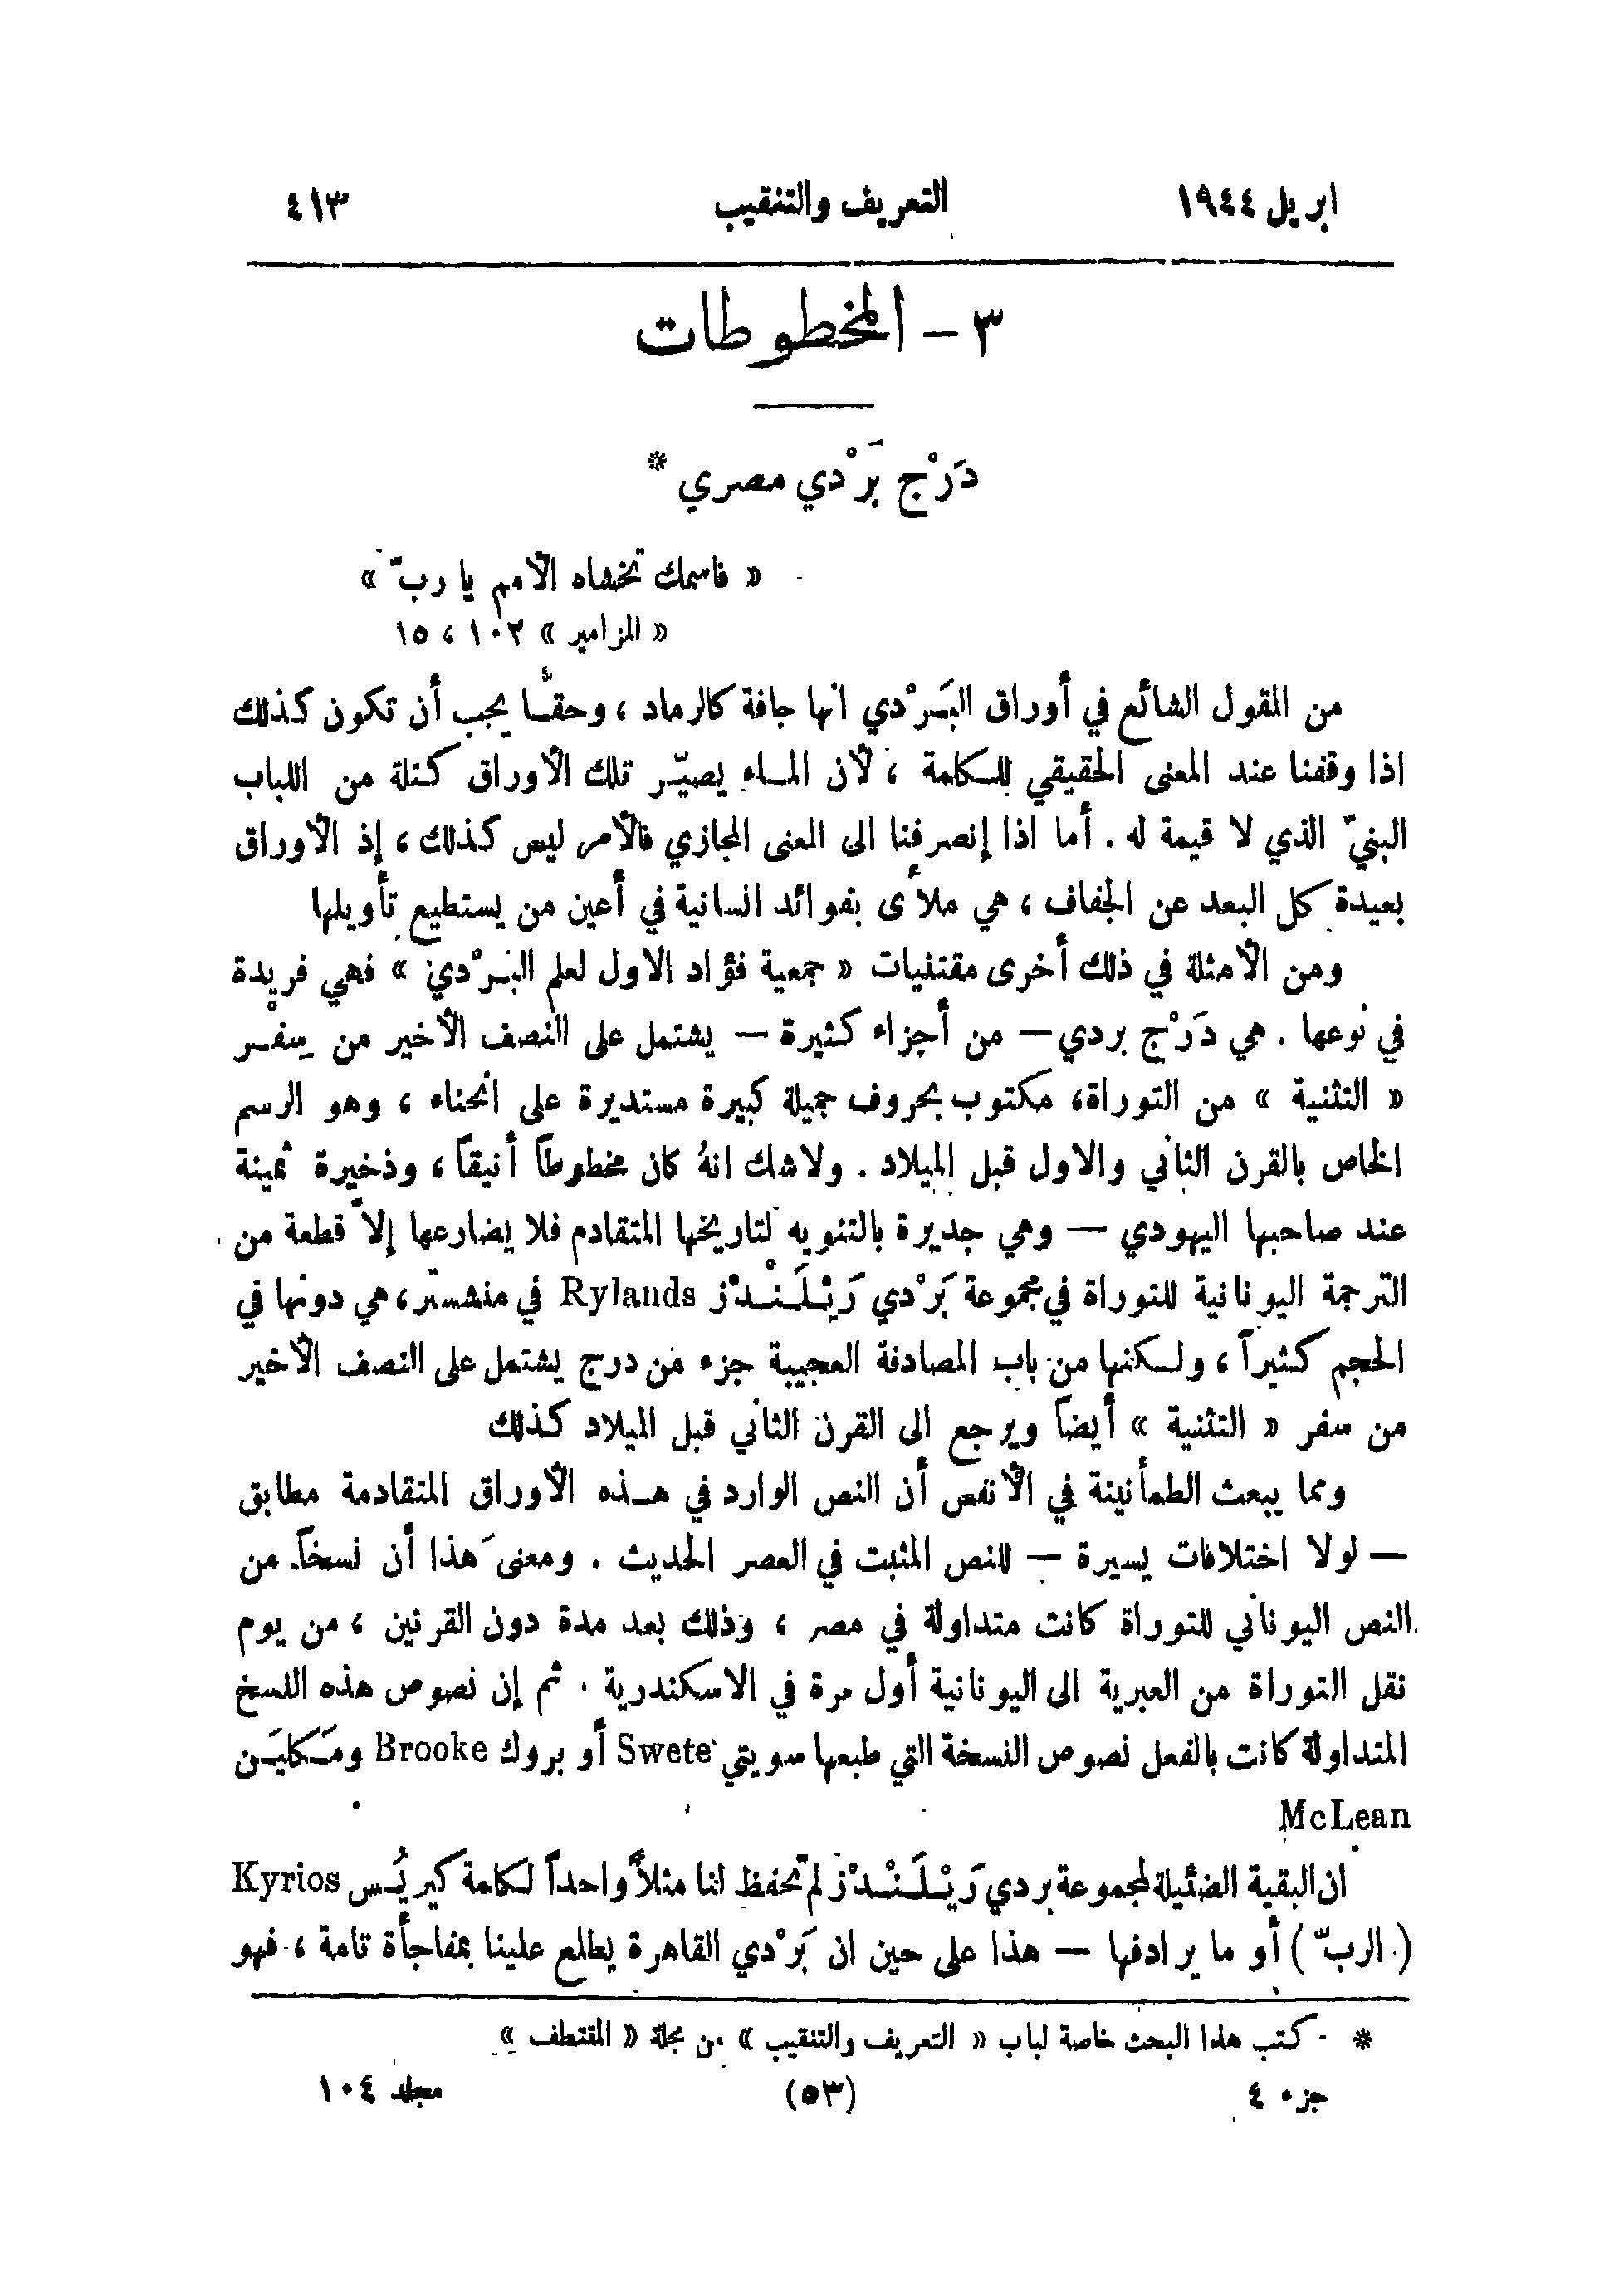 ابريل ١٩٤٤ التعريف والتنقيب ٤١٣
٣ – المخطوطات
دَرْج بَرْدي مصري *
« فاسمك تخشاه الأمم يا ربّ »
« المزامير » ١٠٢ ، ١٥
من المقول الشائع في أوراق البَرْدي انها جافة كالرماد ، وحقًّا يجب أن تكون كذلك
اذا وقفنا عند المعنى الحقيقي للكلمة ، لأن الماء يصيّر تلك الأوراق كتلة من اللباب
البنيّ الذي لا قيمة له . أما اذا إنصرفنا الى المعنى المجازي فالأمر ليس كذلك ، إذ الأوراق
بعيدة كل البعد عن الجفاف ، هي ملأى بفوائد انسانية في أعين من يستطيع تأويلها
ومن الأمثلة في ذلك أخرى مقتنيات « جمعية فؤاد الاول لعلم البَرْدي » فهي فريدة
في نوعها . هي دَرْج بردي — من أجزاء كثيرة — يشتمل على النصف الأخير من سِفْر
« التثنية » من التوراة، مكتوب بحروف جميلة كبيرة مستديرة على انحناء ، وهو الرسم
الخاص بالقرن الثاني والاول قبل الميلاد . ولاشك انهُ كان مخطوطاً أنيقاً ، وذخيرة ثمينة
عند صاحبها اليهودي — وهي جديرة بالتنويه لتاريخها المتقادم فلا يضارعها إلاَّ قطعة من
الترجمة اليونانية للتوراة في مجموعة بَرْدي رَيْلَنْدْز Rylands في منشستر، هي دونها في
الحجم كثيراً ، ولكنها من باب المصادفة العجيبة جزء من درج يشتمل على النصف الأخير
من سفر « التثنية » أيضاً ويرجع الى القرن الثاني قبل الميلاد كذلك
ومما يبعث الطمأنينة في الأنفس أن النص الوارد في هذه الأوراق المتقادمة مطابق
— لولا اختلافات يسيرة — للنص المثبت في العصر الحديث . ومعنى هذا أن نسخاً من
النص اليوناني للتوراة كانت متداولة في مصر ، وذلك بعد مدة دون القرنين ، من يوم
نقل التوراة من العبرية الى اليونانية أول مرة في الاسكندرية . ثم إن نصوص هذه النسخ
المتداولة كانت بالفعل نصوص النسخة التي طبعها سويتي Swete أو بروك Brooke ومَكليَن
McLean
ان البقية الضئيلة لمجموعة بردي رَيْلَنْدْز لم تحفظ لنا مثلاً واحداً لكلمة كيريُس Kyrios
( الربّ ) أو ما يرادفها — هذا على حين ان بَرْدي القاهرة يطلع علينا بمفاجأة تامة ، فهو
* كتب هذا البحث خاصة لباب « التعريف والتنقيب » من مجلة « المقتطف »
جزء ٤ (٥٣) مجلد ١٠٤